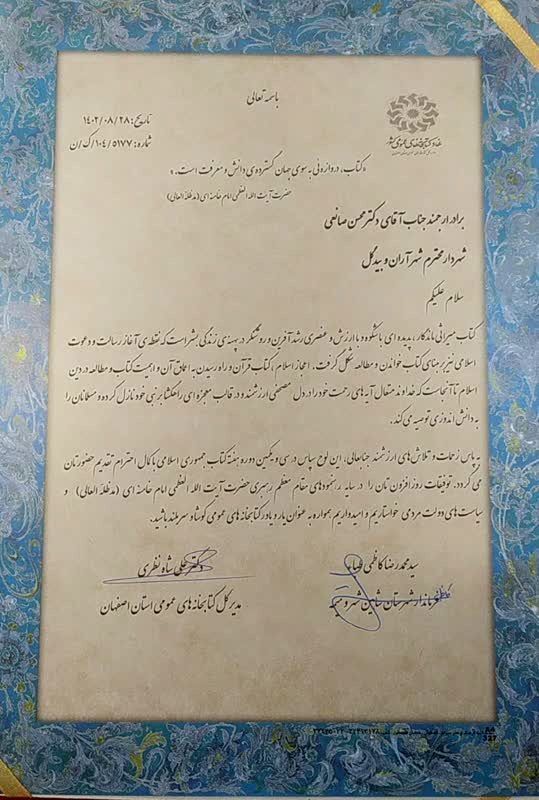 باسمه تعالی
تاریخ: ۱۴۰۲/۰۸/۲۸
شماره: ۱۰۴/۵۱۷۷/ک/ن
نهاد کتابخانه‌های عمومی کشور
«کتاب، دروازه‌ئی به سوی جهان گسترده‌ی دانش و معرفت است.»
حضرت آیت الله العظمی امام خامنه ای (مدظله العالی)
برادر ارجمند جناب آقای دکتر محسن صانعی
شهردار محترم شهر آران و بیدگل
سلام علیکم
کتاب میراثی ماندگار، پدیده ای باشکوه و با ارزش و عنصری رشد آفرین و روشنگر در پهنه‌ی زندگی بشر است که نقطه‌ی آغاز رسالت و دعوت
اسلامی نیز بر مبنای کتاب خواندن و مطالعه شکل گرفت. اعجاز اسلام، کتاب قرآن و راه رسیدن به اعماق آن و اهمیت کتاب و مطالعه در دین
اسلام تا آنجاست که خداوند متعال آیه های رحمت خود را در دل مصحفی ارزشمند و در قالب معجزه ای راهگشا بر نبی خود نازل کرده و مسلمانان را
به دانش اندوزی توصیه می کند.
به پاس زحمات و تلاش های ارزشمند جنابعالی، این لوح سپاس در سی و یکمین دوره هفته کتاب جمهوری اسلامی با کمال احترام تقدیم حضورتان
می گردد. توفیقات روز افزون تان را در سایه رهنمودهای مقام معظم رهبری حضرت آیت الله العظمی امام خامنه ای (مدظله العالی) و
سیاست های دولت مردمی خواستاریم و امیدواریم همواره به عنوان یار و یاور کتابخانه های عمومی کوشا و سربلند باشید.
سید محمدرضا کاظمی طباء
فرماندار شهرستان شاهین شهر و میمه
دکتر علی شاه نظری
مدیر کل کتابخانه های عمومی استان اصفهان
327